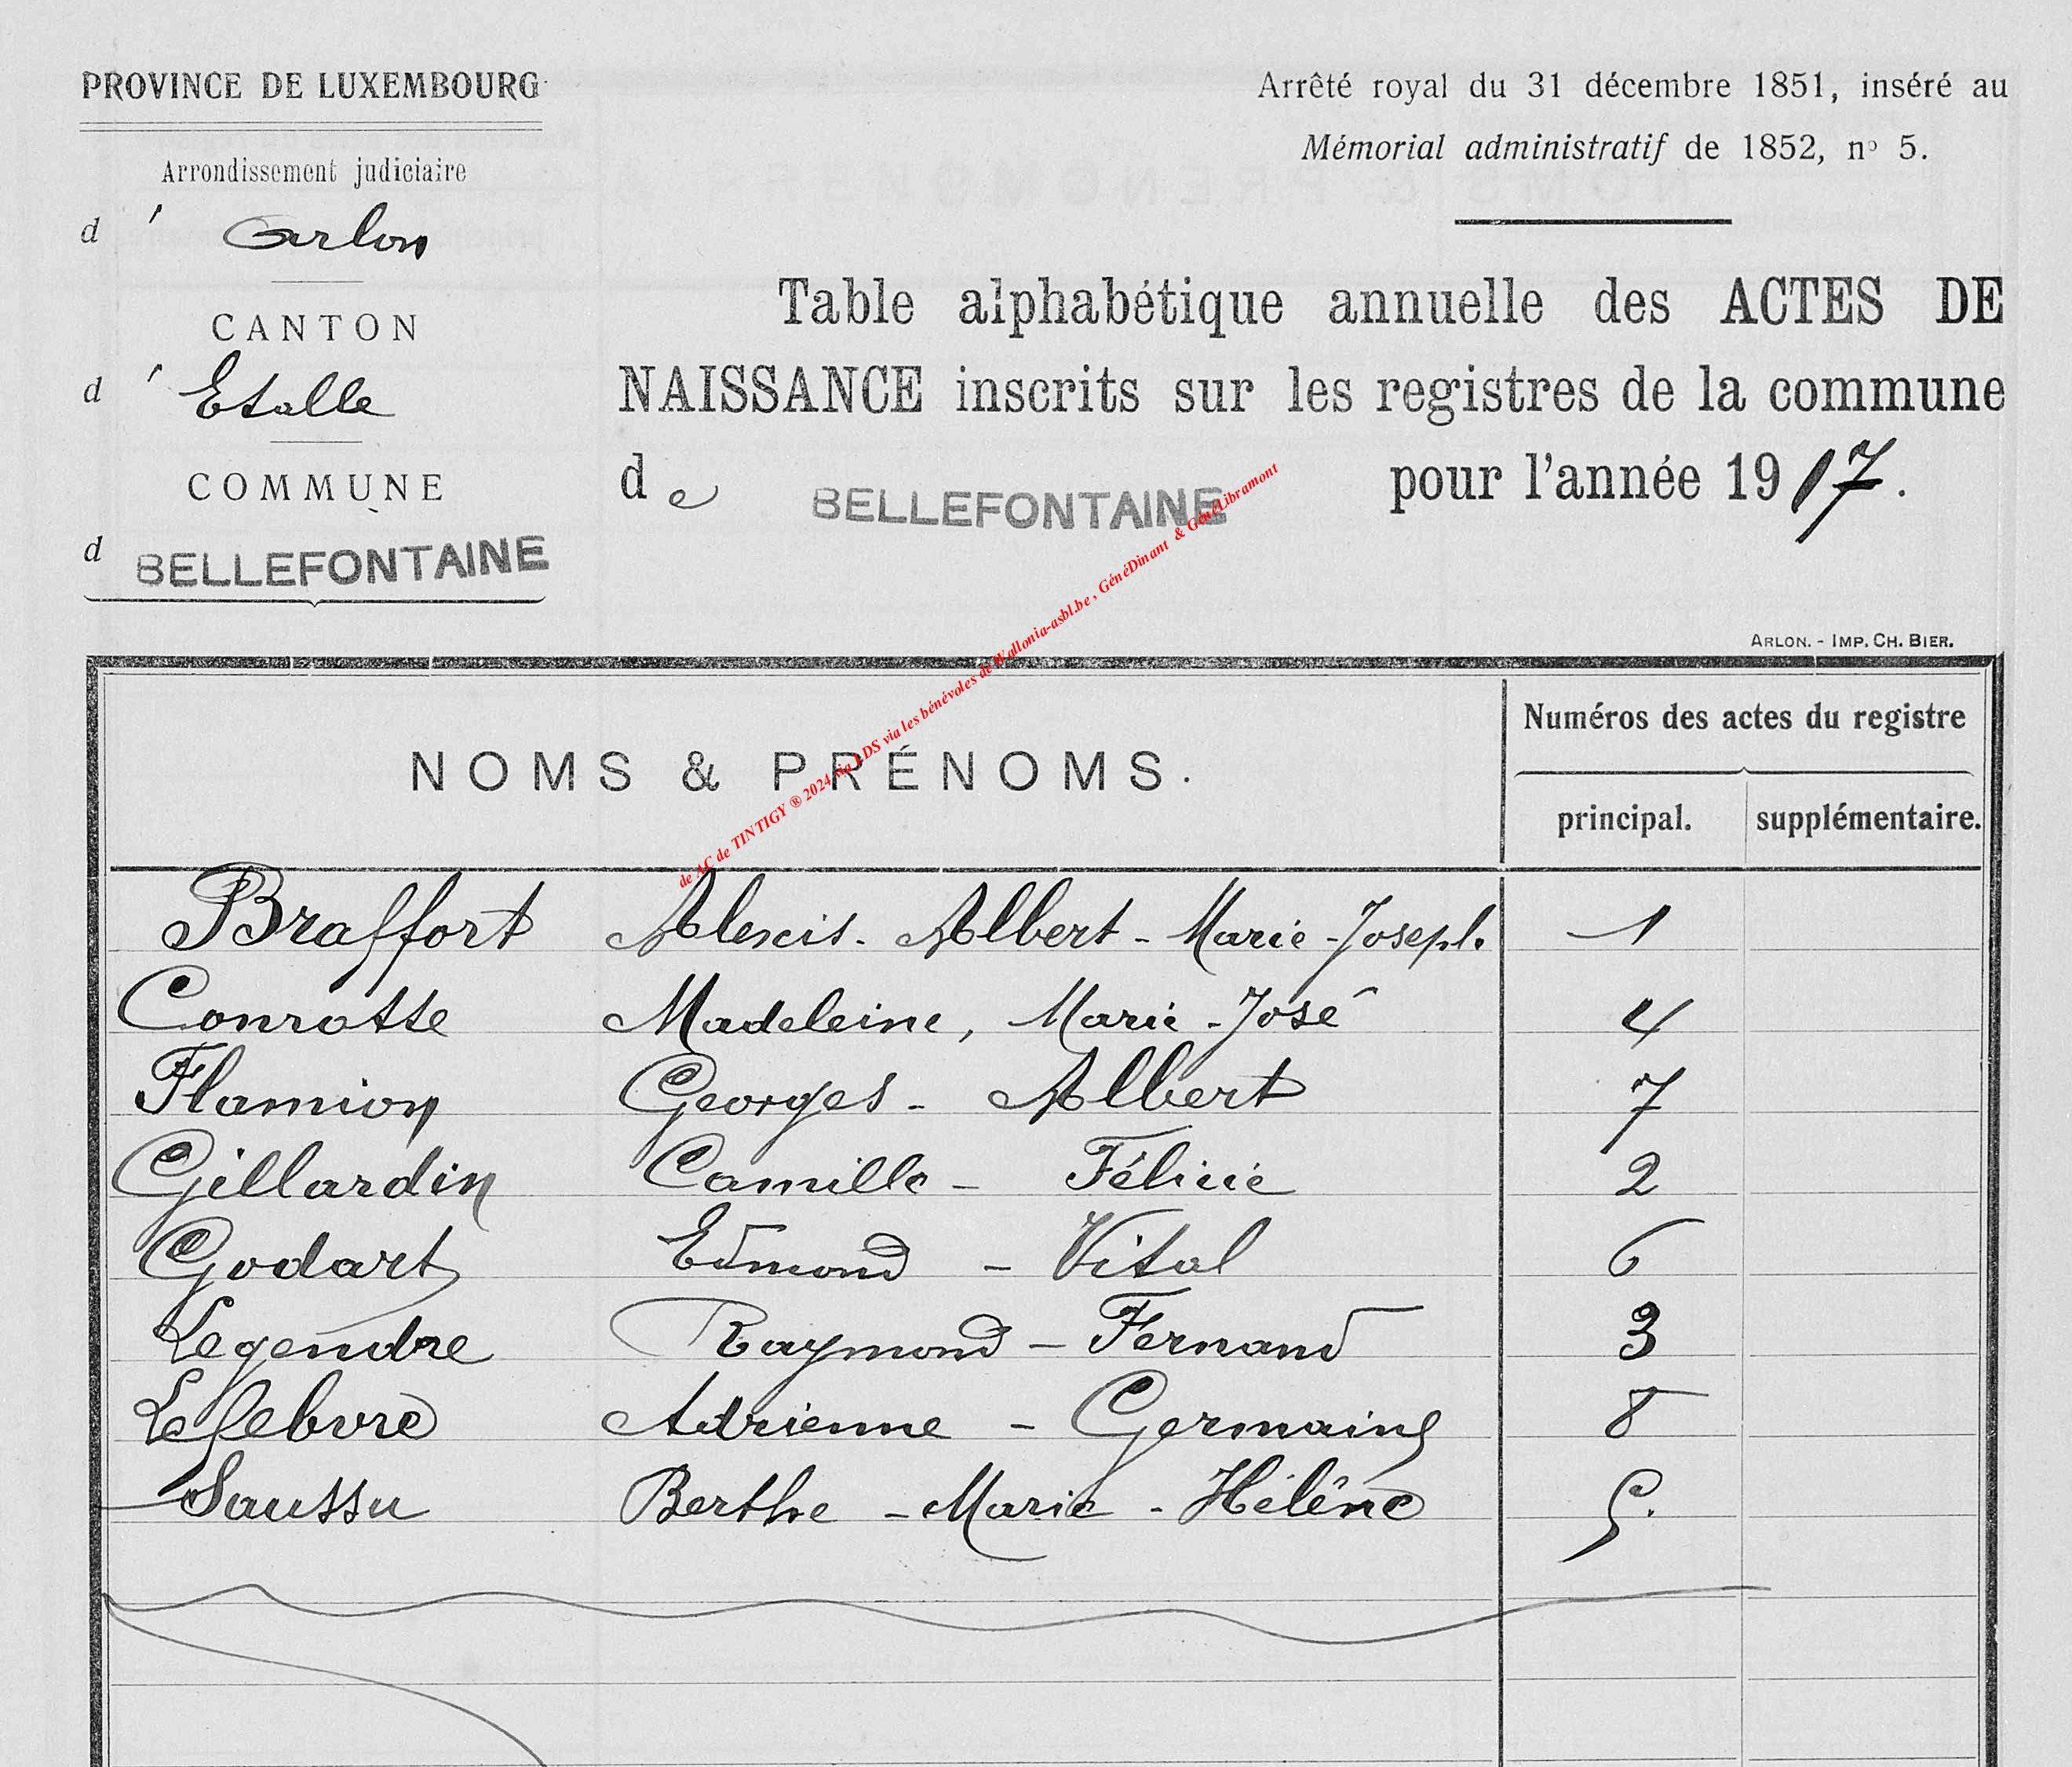 PROVINCE DE LUXEMBOURG
Arrondissement judiciaire
d' Arlon
CANTON
d' Etalle
COMMUNE
d BELLEFONTAINE
Arrêté royal du 31 décembre 1851, inséré au
Mémorial administratif de 1852, nº 5.
Table alphabétique annuelle des ACTES DE
NAISSANCE inscrits sur les registres de la commune
de BELLEFONTAINE pour l'année 1917.
ARLON. - IMP. CH. BIER.
de AC de TINTIGY ® 2024 via LDS via les bénévoles de Wallonia-asbl.be , GénéDinant & GénéLibramont
NOMS & PRÉNOMS.
Numéros des actes du registre
principal. supplémentaire.
Braffort Alexis - Albert - Marie - Joseph. 1
Conrotte Madeleine, Marie - José 4
Flamion Georges - Albert 7
Gillardin Camille - Félicie 2
Godart Edmond - Vital 6
Legendre Raymond - Fernand 3
Lefebvre Adrienne - Germaine 8
Saussu Berthe - Marie - Hélène 5.